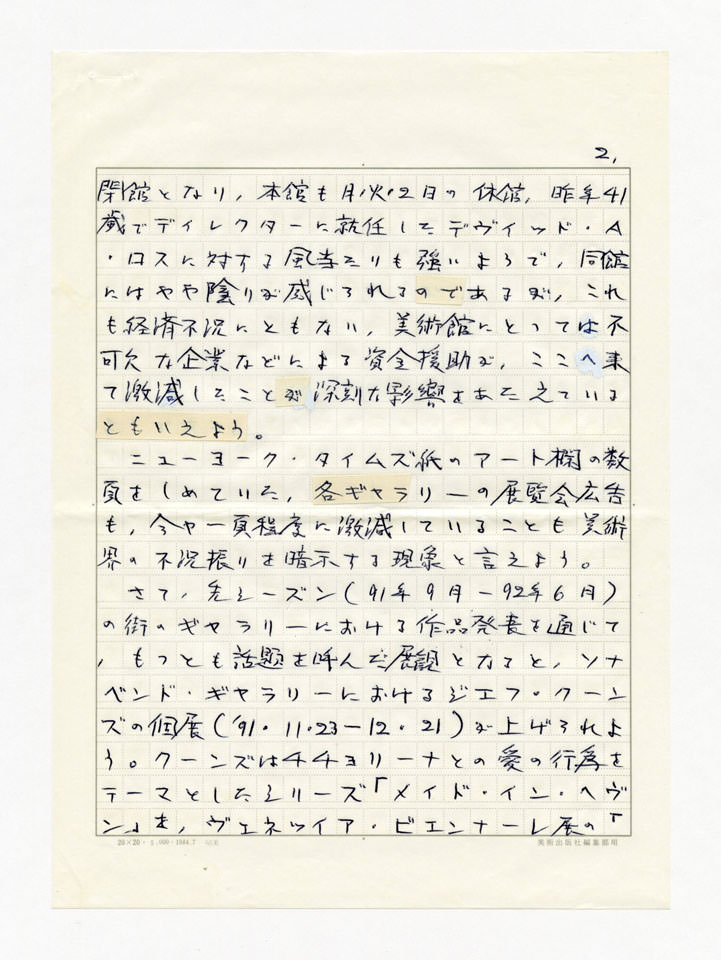 2,
閉館となり，本館も月，火・2日の休館，昨年41
歳でディレクターに就任したデヴィッド・A
・ロスに対する風当たりも強いようで，同館
にはやや陰りが感じられるのであるが，これ
も経済不況にともない，美術館にとっては不
可欠な企業などによる資金援助が，ここへ来
て激減したことが深刻な影響をあたえている
ともいえよう。
ニューヨーク・タイムズ紙のアート欄の数
頁をしめていた，各ギャラリーの展覧会広告
も，今や一頁程度に激減していることも美術
界の不況振りを暗示する現象と言えよう。
さて，先シーズン(91年9月－92年6月)
の街のギャラリーにおける作品発表を通じて
，もっとも話題を呼んだ展観となると，ソナ
ベンド・ギャラリーにおけるジェフ・クーン
ズの個展('91・11・23－12・21)が上げられよ
う。クーンズはチチョリーナとの愛の行為を
テーマとしたシリーズ「メイド・イン・ヘヴ
ン」を，ヴェネツィア・ビエンナーレ展の「
20×20・5,000・1984.7
美術出版社編集部用